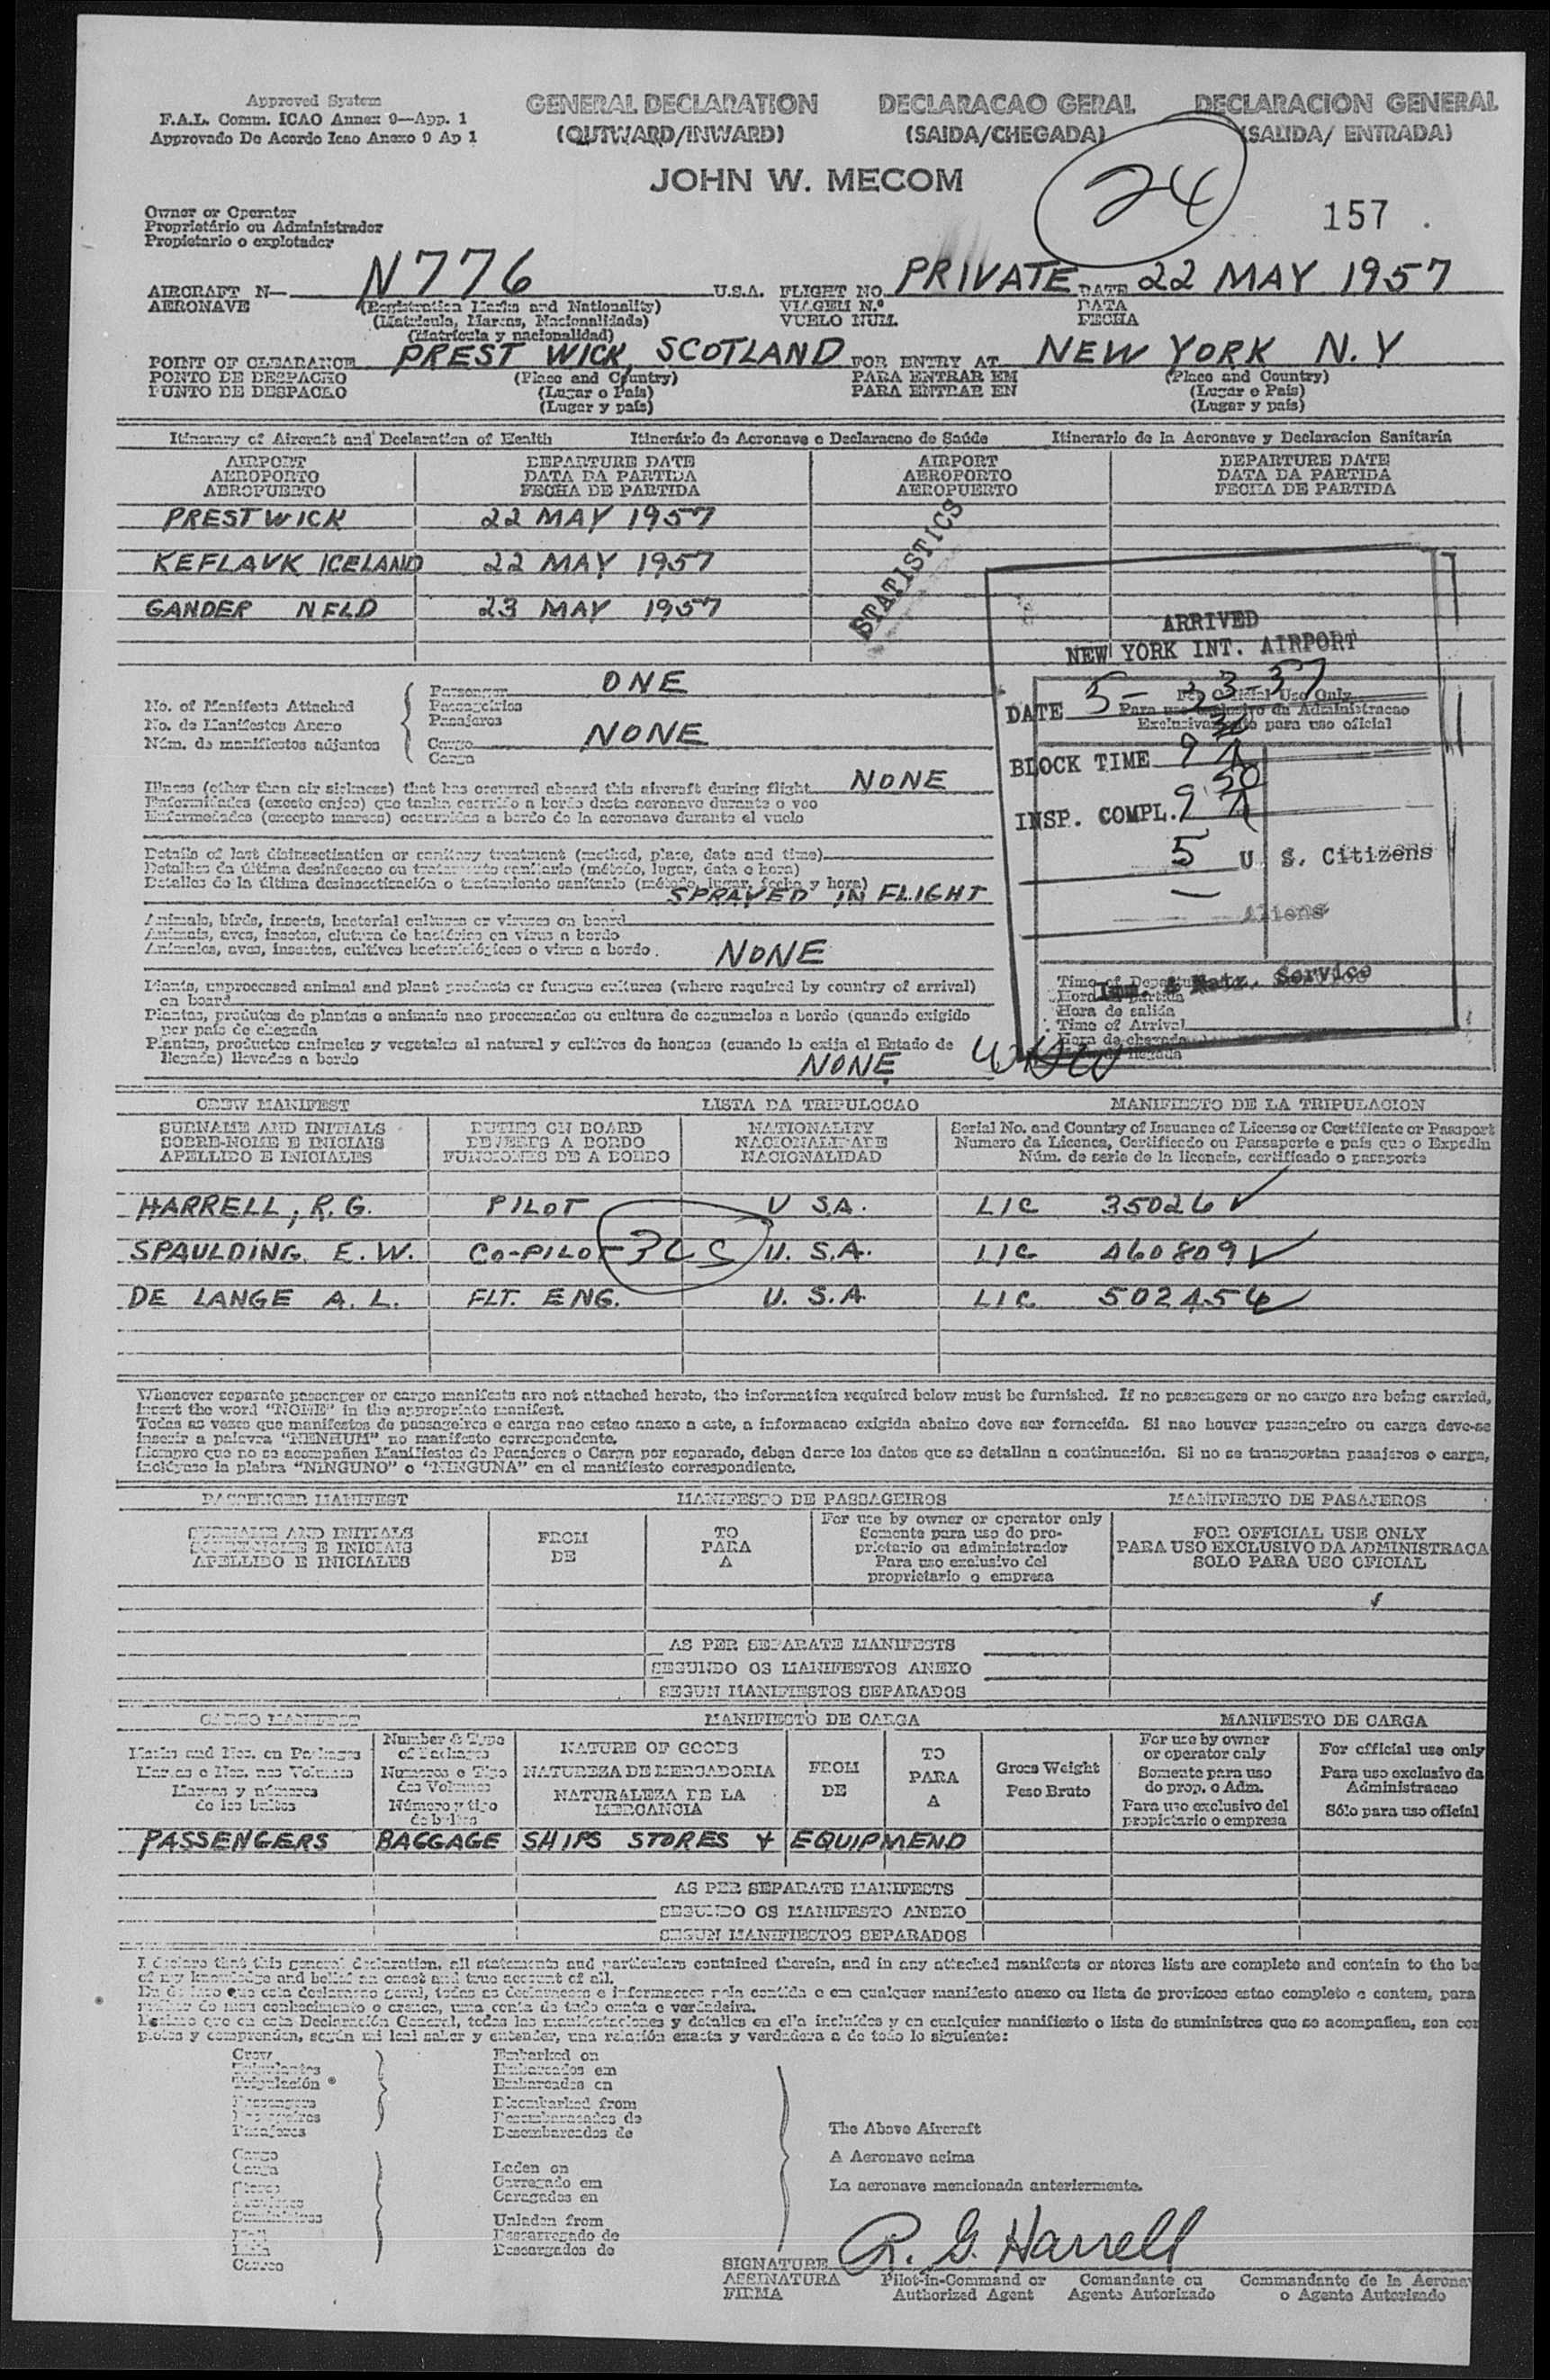 Approved System
F.A.L. Comm. ICAO Annex 9—App. 1
Approvado De Acordo Icao Anexo 9 Ap 1
GENERAL DECLARATION
(OUTWARD/INWARD)
DECLARACAO GERAL
(SAIDA/CHEGADA)
DECLARACION GENERAL
(SALIDA/ ENTRADA)
JOHN W. MECOM
24
157
Owner or Operator
Proprietário ou Administrador
Propietario o explotador
AIRCRAFT N— N776 U.S.A. FLIGHT NO. PRIVATE DATE 22 MAY 1957
AERONAVE (Registration Marks and Nationality) VIAGEM N.º DATA
(Matricula, Marcas, Nacionalidade) VUELO NUM. FECHA
(Matrícula y nacionalidad)
POINT OF CLEARANCE PREST WICK, SCOTLAND FOR ENTRY AT NEW YORK N.Y
PONTO DE DESPACHO (Place and Country) PARA ENTRAR EM (Place and Country)
PUNTO DE DESPACHO (Lugar o País) PARA ENTRAR EN (Lugar o País)
(Lugar y país) (Lugar y país)
Itinerary of Aircraft and Declaration of Health Itinerário do Aeronave e Declaracao de Saúde Itinerario de la Aeronave y Declaracion Sanitaria
AIRPORT DEPARTURE DATE AIRPORT DEPARTURE DATE
AEROPORTO DATA DA PARTIDA AEROPORTO DATA DA PARTIDA
AEROPUERTO FECHA DE PARTIDA AEROPUERTO FECHA DE PARTIDA
PRESTWICK 22 MAY 1957
KEFLAVK ICELAND 22 MAY 1957
GANDER NFLD 23 MAY 1957
STATISTICS
ARRIVED
NEW YORK INT. AIRPORT
DATE
BLOCK TIME
INSP. COMPL.
5 U. S. Citizens
— Aliens
Imm. & Natz. Service
For Official Use Only
Para uso exclusivo da Administracao
Exclusivamente para uso oficial
No. of Manifests Attached
No. de Manifestos Anexo
Núm. de manifiestos adjuntos
Passenger ONE
Passageiros
Pasajeros
Cargo NONE
Carga
Illness (other than air sickness) that has occured aboard this aircraft during flight NONE
Enfermidades (exceto enjoo) que tenha ocorrido a bordo desta aeronave durante o voo
Enfermedades (excepto mareos) ocurridas a bordo de la aeronave durante el vuelo
Details of last disinsectization or sanitary treatment (method, place, date and time)
Detalhes da última desinfeccao ou tratamento sanitario (método, lugar, data e hora)
Detalles de la última desinsectización o tratamiento sanitario (método, lugar, fecha y hora)
SPRAYED IN FLIGHT
Animals, birds, insects, bacterial cultures or viruses on board
Animais, aves, insetos, clutura de bactérias en virus a bordo
Animales, aves, insectos, cultivos bacteriológicos o virus a bordo. NONE
Plants, unprocessed animal and plant products or fungus cultures (where required by country of arrival)
on board
Plantas, produtos de plantas o animais nao processados ou cultura de cogumelos a bordo (quando exigido
per país de chegada
Plantas, productos animales y vegetales al natural y cultivos de hongos (cuando lo exija el Estado de
llegada) llevados a bordo NONE
Time of Departure
Hora de partida
Hora de salida
Time of Arrival
Hora de chegada
CREW MANIFEST LISTA DA TRIPULOCAO MANIFIESTO DE LA TRIPULACION
SURNAME AND INITIALS DUTIES ON BOARD NATIONALITY Serial No. and Country of Issuance of License or Certificate or Passport
SOBRE-NOME E INICIAIS DEVERES A BORDO NACIONALIDADE Numero da Licenca, Certificado ou Passaporte e país que o Expediu
APELLIDO E INICIALES FUNCIONES DE A BORDO NACIONALIDAD Núm. de serie de la licencia, certificado o pasaporte
HARRELL, R.G. PILOT U SA. LIC 35026
SPAULDING. E.W. CO-PILOT U. S.A. LIC 460809
DE LANGE A. L. FLT. ENG. U. S.A. LIC 502454
Whenever separate passenger or cargo manifests are not attached hereto, the information required below must be furnished. If no passengers or no cargo are being carried,
insert the word "NONE" in the appropriate manifest.
Todas as vezes que manifestos de passageiros e carga nao estao anexo a este, a informacao exigida abaixo deve ser fornecida. Si nao houver passageiro ou carga deve-se
inserir a palavra "NENHUM" no manifesto correspondente.
Siempre que no se acompañen Manifiestos de Pasajeros o Carga por separado, deben darse los datos que se detallan a continuación. Si no se transportan pasajeros o carga,
inclúyase la plabra "NINGUNO" o "NINGUNA" en el manifiesto correspondiente.
PASSENGER MANIFEST MANIFESTO DE PASSAGEIROS MANIFIESTO DE PASAJEROS
SURNAME AND INITIALS
SOBRENOME E INICIAIS
APELLIDO E INICIALES
FROM
DE
TO
PARA
A
For use by owner or operator only
Somente para uso do pro-
prietario ou administrador
Para uso exclusivo del
proprietario o empresa
FOR OFFICIAL USE ONLY
PARA USO EXCLUSIVO DA ADMINISTRACA
SOLO PARA USO OFICIAL
AS PER SEPARATE MANIFESTS
SEGUNDO OS MANIFESTOS ANEXO
SEGUN MANIFIESTOS SEPARADOS
CARGO MANIFEST MANIFIESTO DE CARGA MANIFESTO DE CARGA
Marks and Nos. on Packages
Marcas e Nos. nos Volumes
Marcas y números
de los bultos
Number & Type
of Packages
Numeros e Tipo
dos Volumes
Número y tipo
de bultos
NATURE OF GOODS
NATUREZA DE MERCADORIA
NATURALEZA DE LA
MERCANCIA
FROM
DE
TO
PARA
A
Gross Weight
Peso Bruto
For use by owner
or operator only
Somente para uso
do prop. o Adm.
Para uso exclusivo del
propietario o empresa
For official use only
Para uso exclusivo da
Administracao
Sólo para uso oficial
PASSENGERS BAGGAGE SHIPS STORES & EQUIPMEND
AS PER SEPARATE MANIFESTS
SEGUNDO OS MANIFESTO ANEXO
SEGUN MANIFIESTOS SEPARADOS
I declare that this general declaration, all statements and particulars contained therein, and in any attached manifests or stores lists are complete and contain to the be
of my knowledge and belief an exact and true account of all.
Eu declaro que esta declaracao geral, todas as declaracoes e informacoes nela contida e em qualquer manifesto anexo ou lista de provisoes estao completo e contem, para
melhor do meu conhecimento e crenca, uma conta de tudo exata e verdadeira.
Declaro que en esta Declaración General, todas las manifestaciones y detalles en ella incluídos y en cualquier manifiesto o lista de suministros que se acompañen, son com
pletos y comprenden, según mi leal saber y entender, una relación exacta y verdadera a de todo lo siguiente:
Crew
Tripulantes
Tripulación
Passengers
Passageiros
Pasajeros
Embarked on
Embarcados em
Embarcados en
Disembarked from
Desembarcados de
Desembarcados de
Cargo
Carga
Stores
Suministros
Mail
Mala
Correo
Laden on
Carregado em
Caragados en
Unladen from
Descarregado de
Descargados de
The Above Aircraft
A Aeronave acima
La aeronave mencionada anteriormente.
SIGNATURE R. G. Harrell
ASSINATURA Pilot-in-Command or Comandante ou Commandante de la Aerona
FIRMA Authorized Agent Agente Autorizado o Agente Autorizado